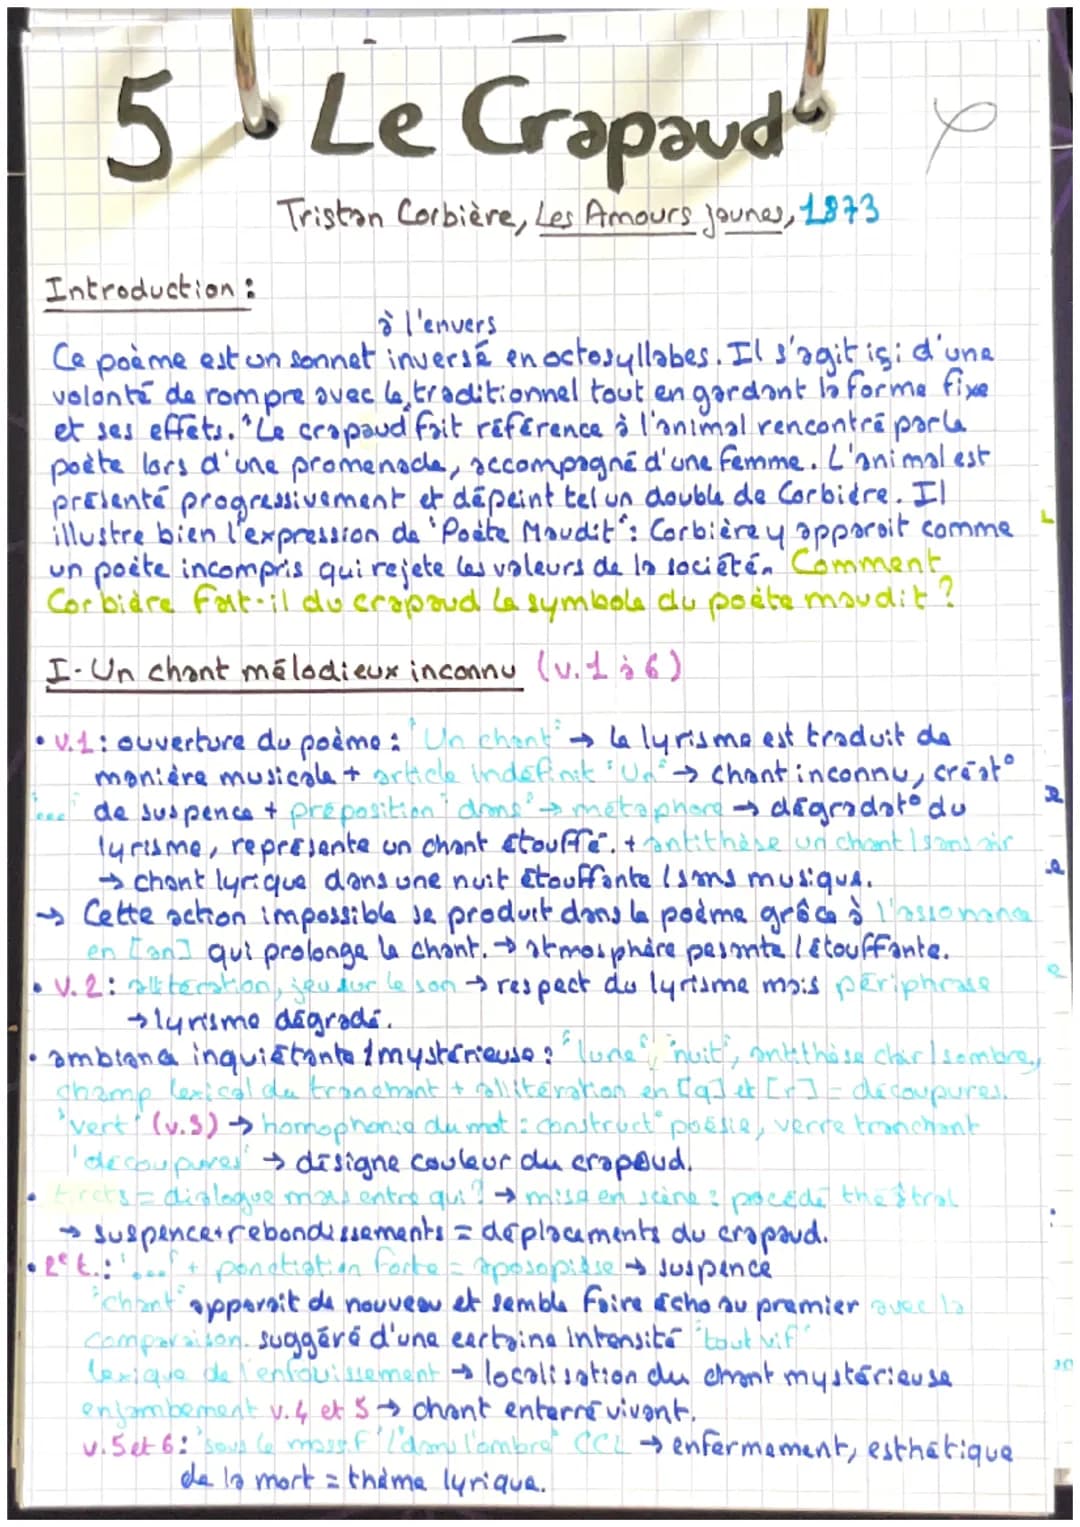 5 Le Crapaud
Tristan Corbière, Les Amours jaunes, 1873
Introduction :
à l'envers
Ce poème est un sonnet inversé en octosyllabes. Il s'agit içi d'une
volonté de rompre avec le traditionnel tout en gardant la forme fixe
et ses effets. "Le crapaud fait référence à l'animal rencontré par le
poète lors d'une promenade, accompagné d'une femme. L'animal est
présenté progressivement et dépeint tel un double de Corbière. Il
illustre bien l'expression de "Poète Maudit" : Corbière y apparait comme
un poète incompris qui rejete les valeurs de la société. Comment
Corbière fait-il du crapaud le symbole du poète maudit ?
I- Un chant mélodieux inconnu (v.1 à 6)
• v.1 : ouverture du poème : "Un chant" → le lyrisme est traduit de
manière musicale + article indéfinit "Un" → chant inconnu, créat°
"..." de suspence + préposition "dans" → métaphore → dégradat° du
lyrisme, représente un chant étouffé. + antithèse un chant / sans air
→ chant lyrique dans une nuit étouffante / sans musique.
→ Cette action impossible se produit dans le poème grâce à l'assonance
en [an] qui prolonge le chant. → atmosphère pesante / étouffante.
• v.2 : allitération, jeu sur le son → respect du lyrisme mais périphrase
→ lyrisme dégradé.
• ambiance inquiétante / mystérieuse : "lune", "nuit", antithèse clair / sombre,
champ lexical du tranchant + allitération en [q] et [r] = découpures.
"vert" (v.3) → homophonie du mot : construct° poésie, verre tranchant
"découpures" → désigne couleur du crapaud.
• tirets = dialogue mais entre qui ? → mise en scène : pocédé théâtral
→ suspence + rebondissements = déplacements du crapaud.
• 2e t. : "..." + ponctiation forte = aposopièse → suspence
"chant" apparait de nouveau et semble faire écho au premier avec la
comparaison. suggéré d'une certaine intensité "tout vif"
lexique de l'enfouissement → localisation du chant mystérieuse
enjambement v.4 et 5 → chant enterré vivant.
v.5 et 6 : "sous le massif" / "dans l'ombre" CCL → enfermement, esthétique
de la mort = thème lyrique.